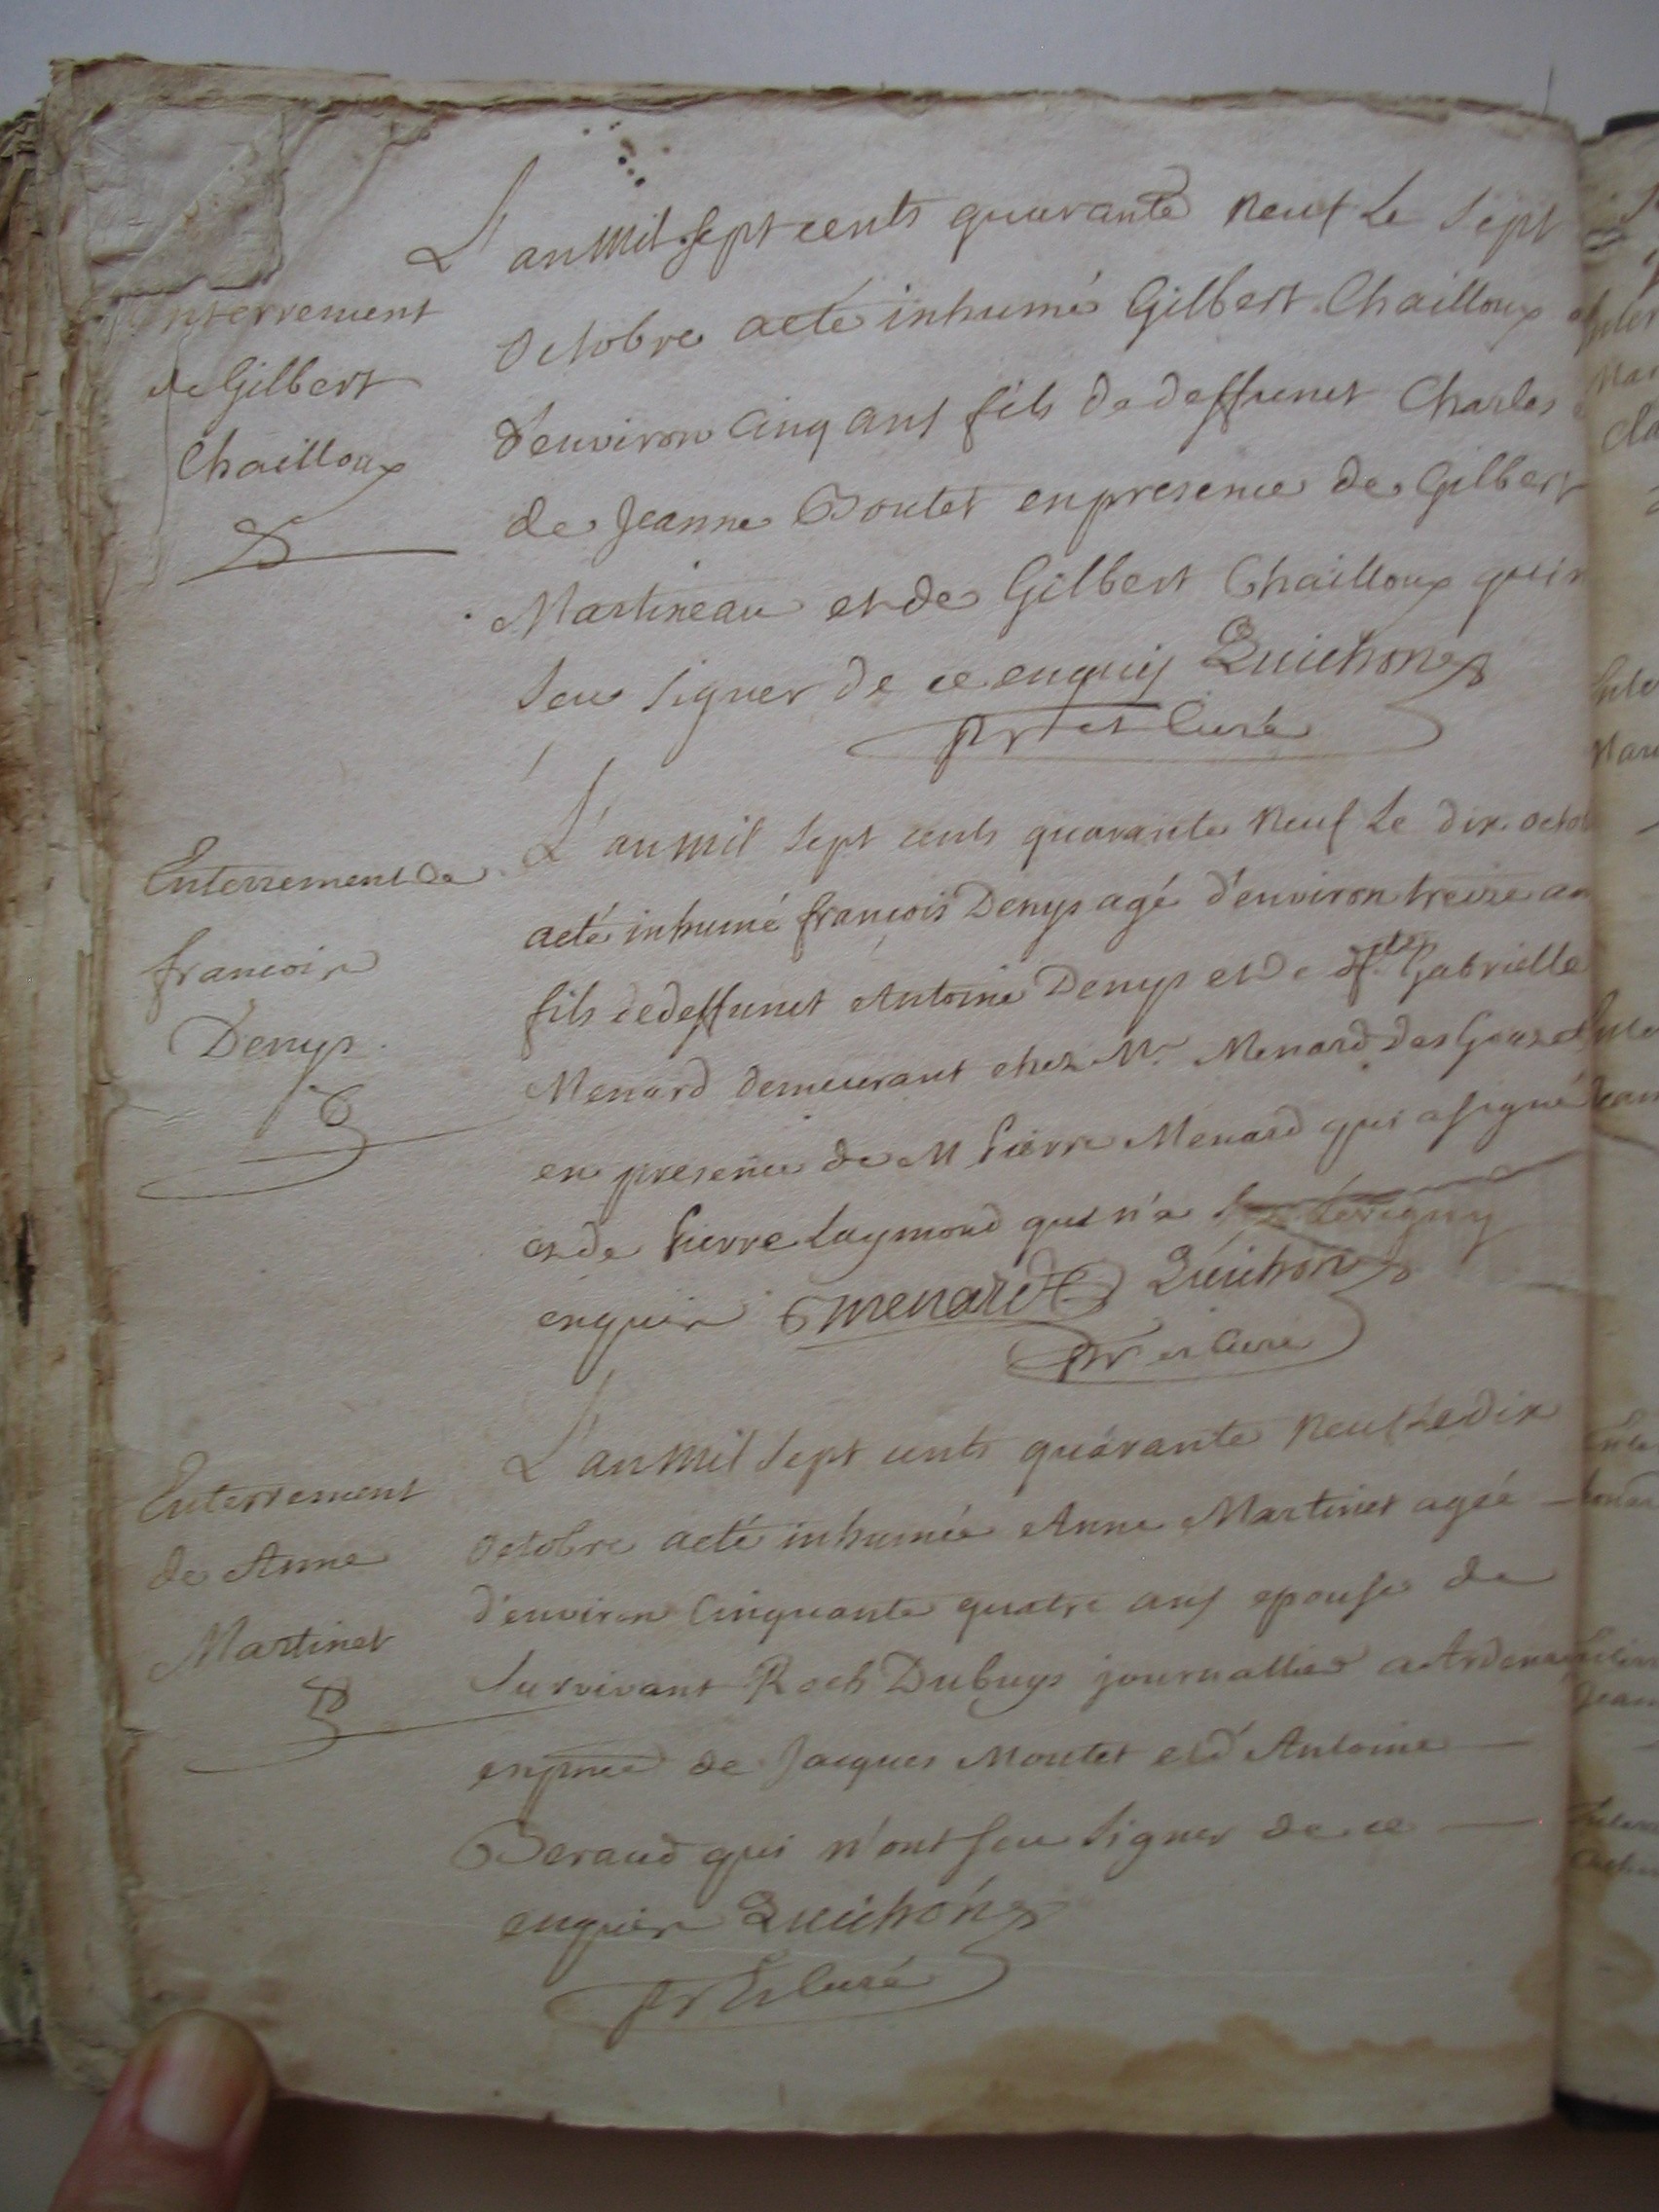 L'an mil sept cents quarante neuf Le sept
octobre a eté inhumé Gilbert Chailloux
nterrement
de Gilbert
Chailloux
d'environ cinq ans fils de deffunct Charles
de Jeanne Boutet en presence de Gilbert
Martineau et de Gilbert Chailloux qui n
seu signer de ce enquis Quichon
Ptre et Curé
Enterrement de
francois
Denys
L'an mil sept cents quarante neuf Le dix octob
a eté inhumé françois Denys agé d'environ treize an
fils de deffunct Antoine Denys et de Gabrielle
Menard demeurant chez Mr Menard Des
en presence de M Pierre Menard qui a signé
et de Pierre Laymond qui n'a
enquis Menard Quichon
Ptre et Curé
Enterrement
de Anne
Martinet
L'an mil sept cents quarante neuf Le dix
octobre a eté inhumée Anne Martinet agée
d'environ Cinquante quatre ans epouse de
survivant Roch Dubuys journallier a Ardena
en pnce de Jacques Moutet et d'Antoine
Beraud qui n'ont seu signer de ce
enquis Quichon
Ptre et Curé